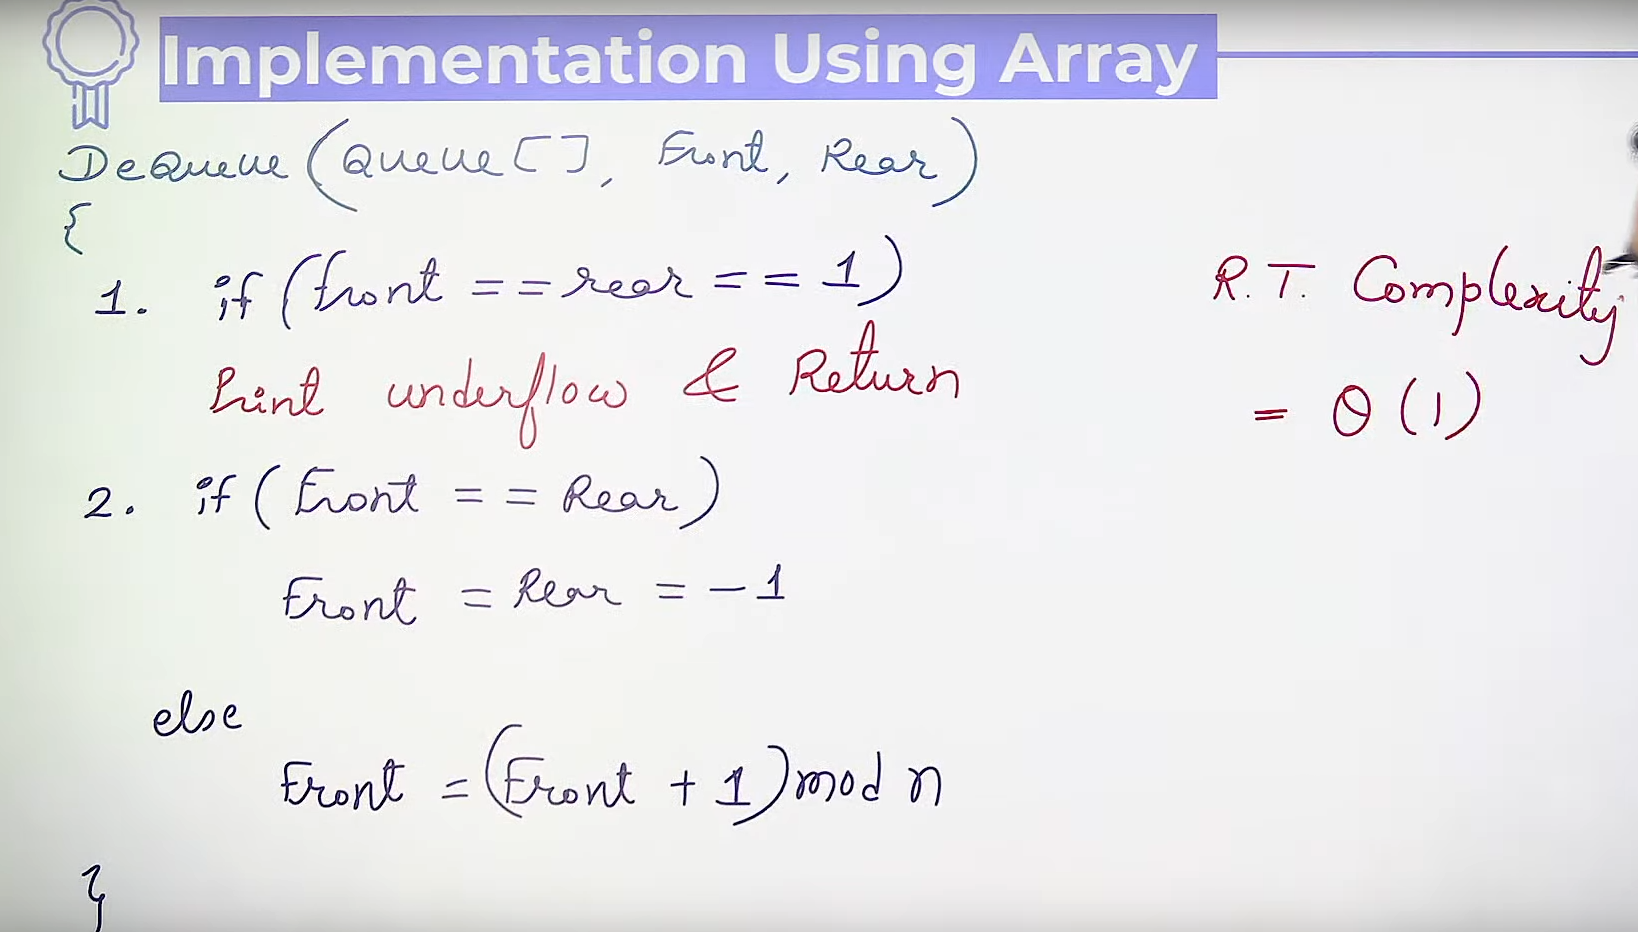 Implementation Using Array
DeQueue (Queue[], Front, Rear)
{
1. if (front == rear == 1)
Print underflow & Return
2. if (Front == Rear)
Front = Rear = -1
else
Front = (Front + 1) mod n
}
R.T. Complexity
= θ(1)